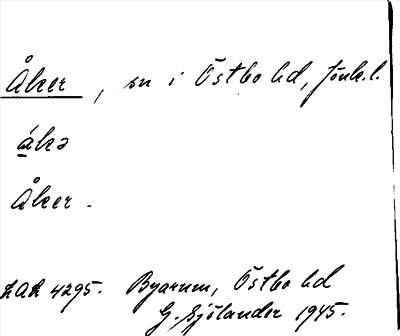 Åker, sn i Östbo hd, Jönk.l.
ákə
Åker.
LAL 4295. Byarum, Östbo hd
G. Sjölander 1945.